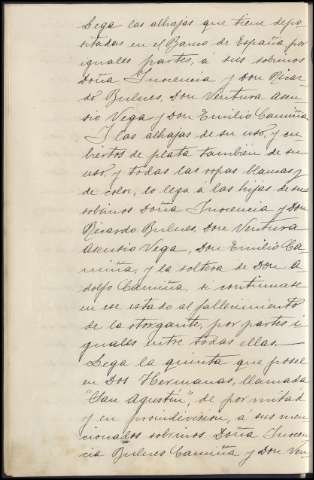 Lega las alhajas que tiene depo-
sitadas en el Banco de España por
iguales partes, a sus sobrinos
Doña Inocencia y Don Ricar-
do Bulnes, Don Ventura Asen-
sio Vega y Don Emilio Camiña
Y las alhajas de su uso, y cu-
biertos de plata también de su
uso, y todas las ropas blancas y
de color, lo lega a las hijas de sus
sobrinos Doña Inocencia y Don
Ricardo Bulnes, Don Ventura
Asensio Vega, Don Emilio Ca-
miña, y la soltera de Don A-
dolfo Camiña, si continuase
en ese estado al fallecimiento
de la otorgante, por partes i-
guales entre todas ellas.—
Lega la quinta que posee
en Dos Hermanas, llamada
"San Agustín", de por mitad
y en proindivision, a sus men-
cionados sobrinos Doña Inocen-
cia Bulnes Camiña y Don Ven-